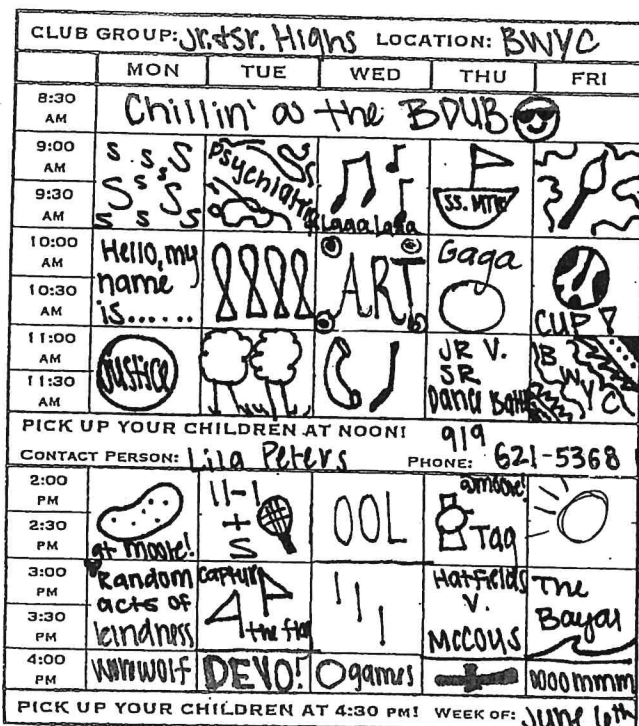 CLUB GROUP: Jr. & Sr. Highs LOCATION: BWYC
MON TUE WED THU FRI
8:30 AM Chillin' at the BDUB
9:00 AM
9:30 AM
S S S S S S S S S S
Psychiatrist
Laaa Laaa
SS. MTK
10:00 AM
10:30 AM
Hello, my
name
is......
ART
Gaga
CUP!
11:00 AM
11:30 AM
Justice
JR V.
SR
Dance Battle
BWYC
PICK UP YOUR CHILDREN AT NOON!
CONTACT PERSON: Lila Peters PHONE: 919 621-5368
2:00 PM
2:30 PM
at Moore!
11-1
+
S
OOL
@moore!
Tag
3:00 PM
3:30 PM
Random
acts of
kindness
Capture
the flag
Hatfields
V.
McCoys
The
4:00 PM
DEVO!
games
PICK UP YOUR CHILDREN AT 4:30 PM! WEEK OF: June